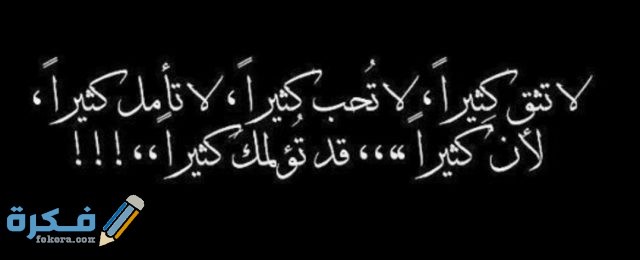 لا تثق كثيراً، لا تُحب كثيراً، لا تأمل كثيراً،
لأن كثيراً ،،،، قد تُؤلمك كثيراً ،،!!!
فكرة
fekera.com